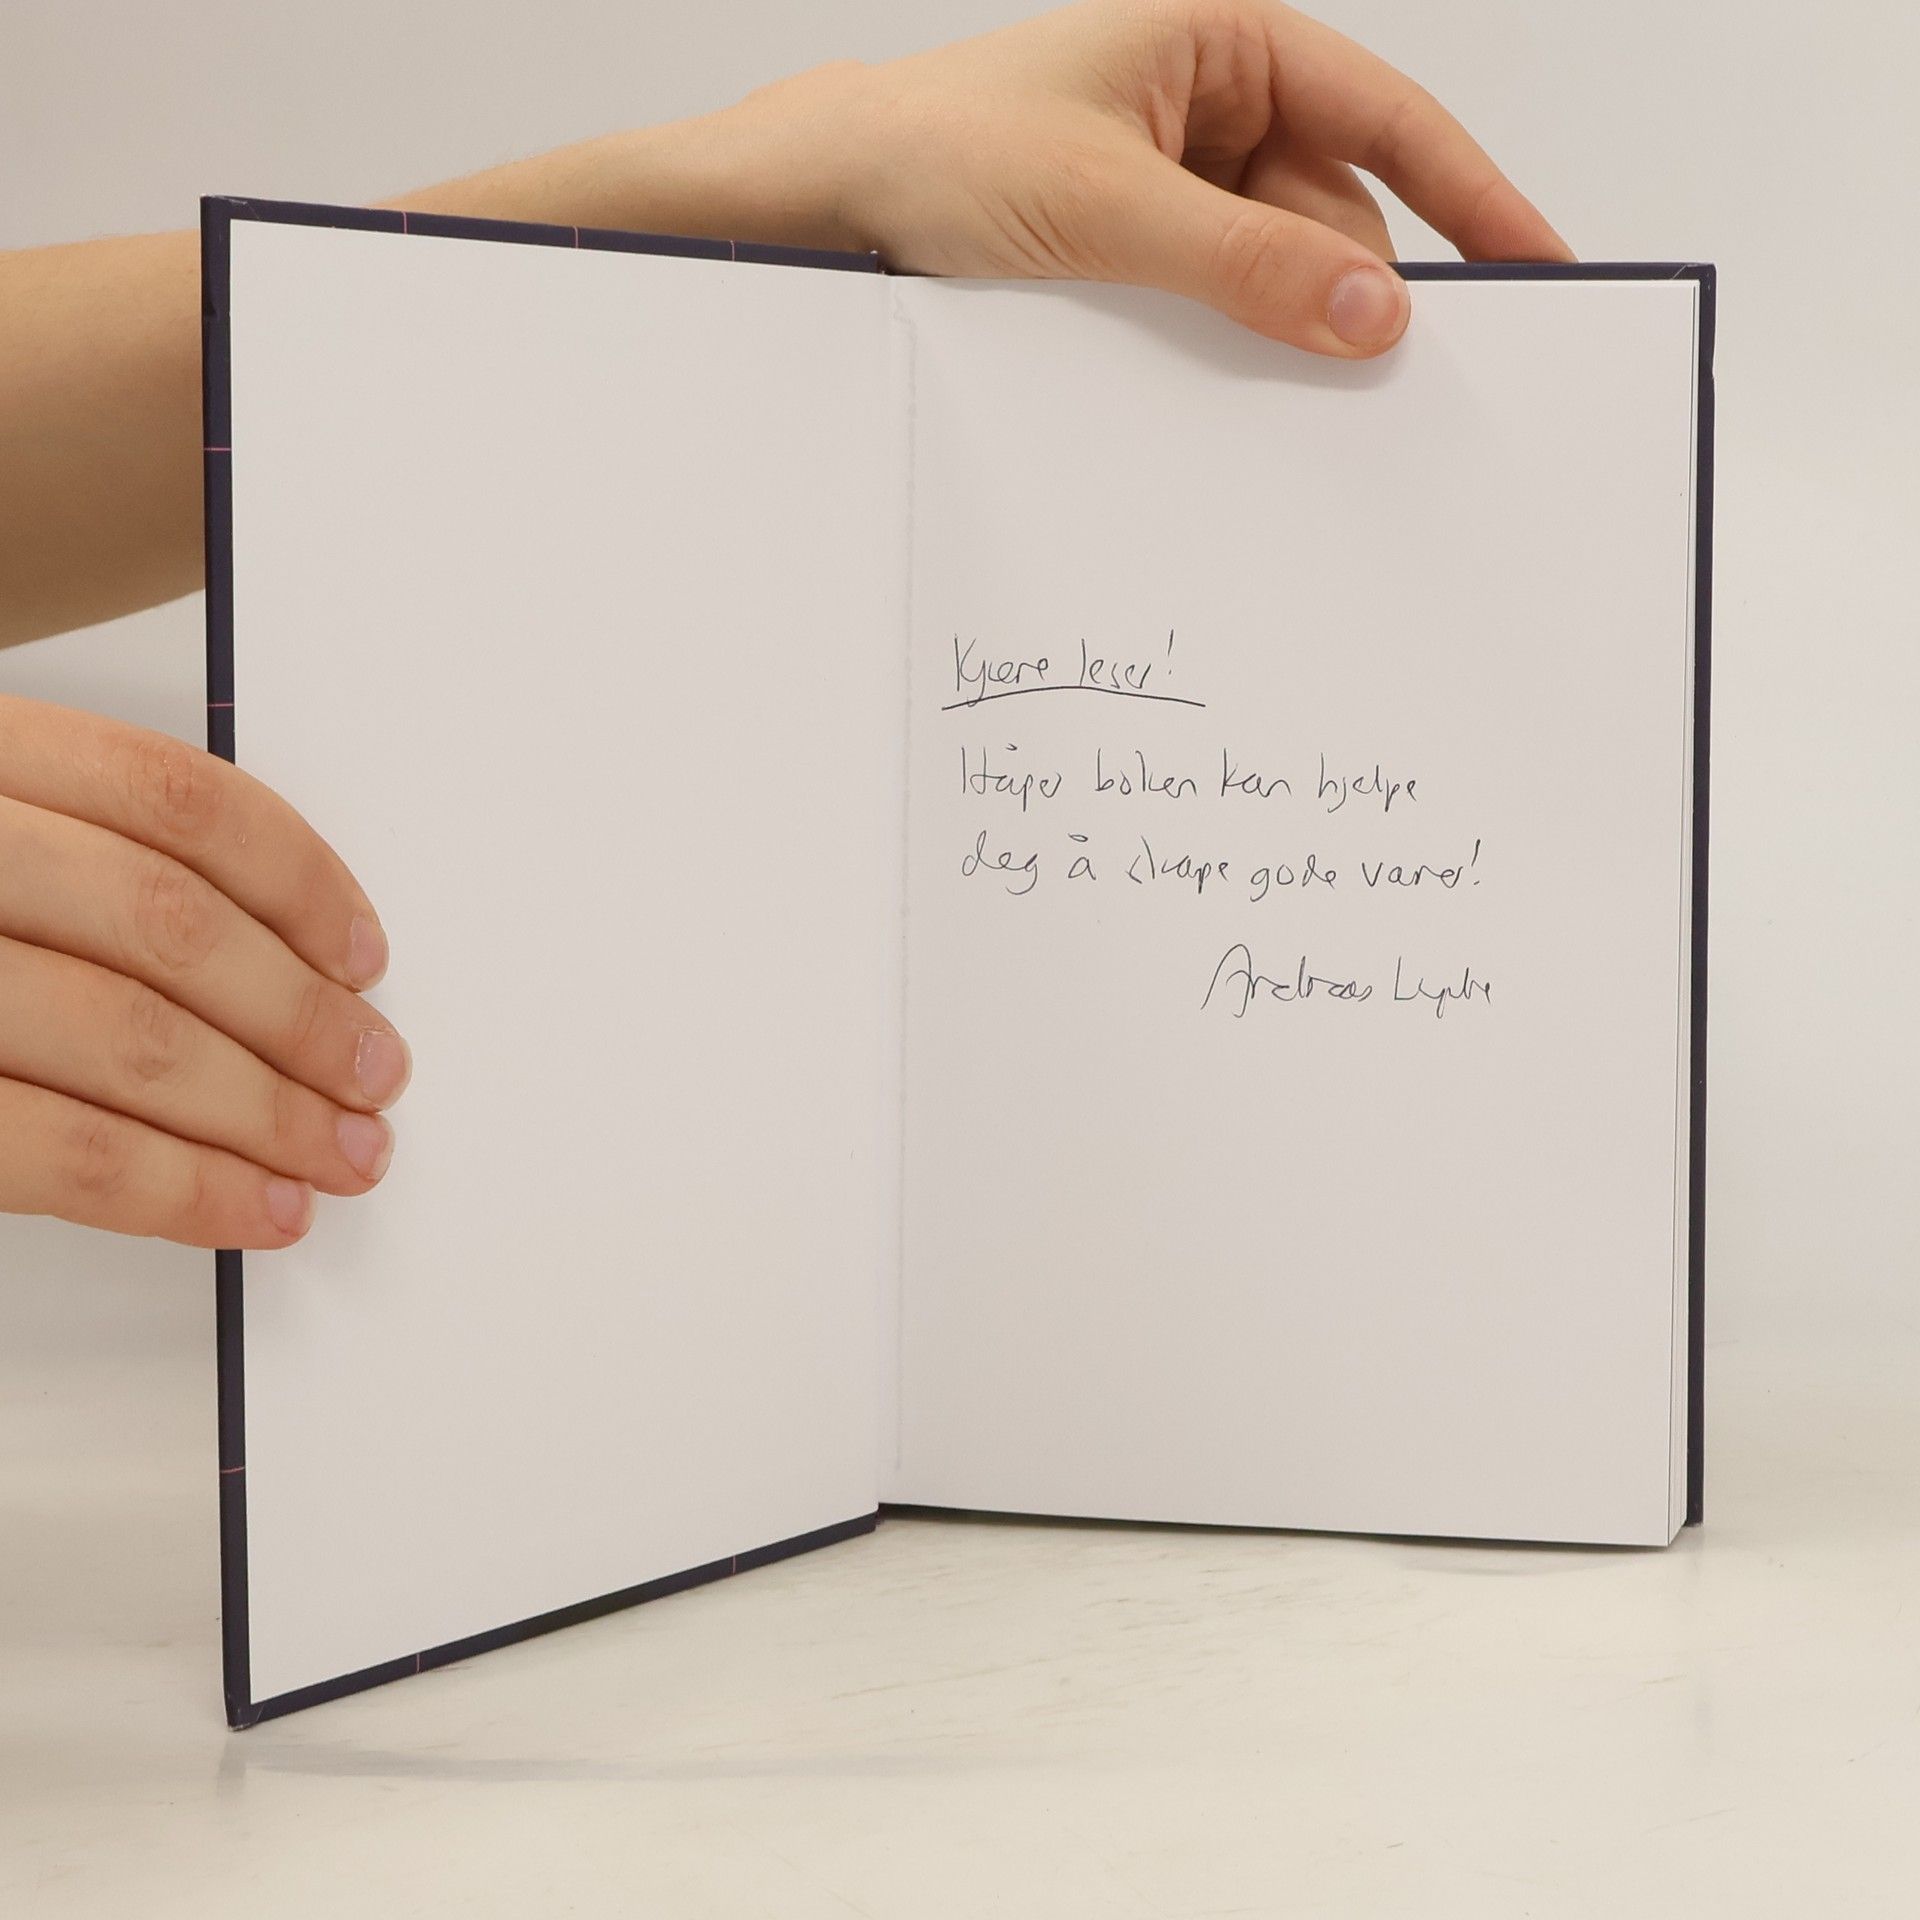 Kjære leser!
Håper boken kan hjelpe
deg å skape gode vaner!
Andreas